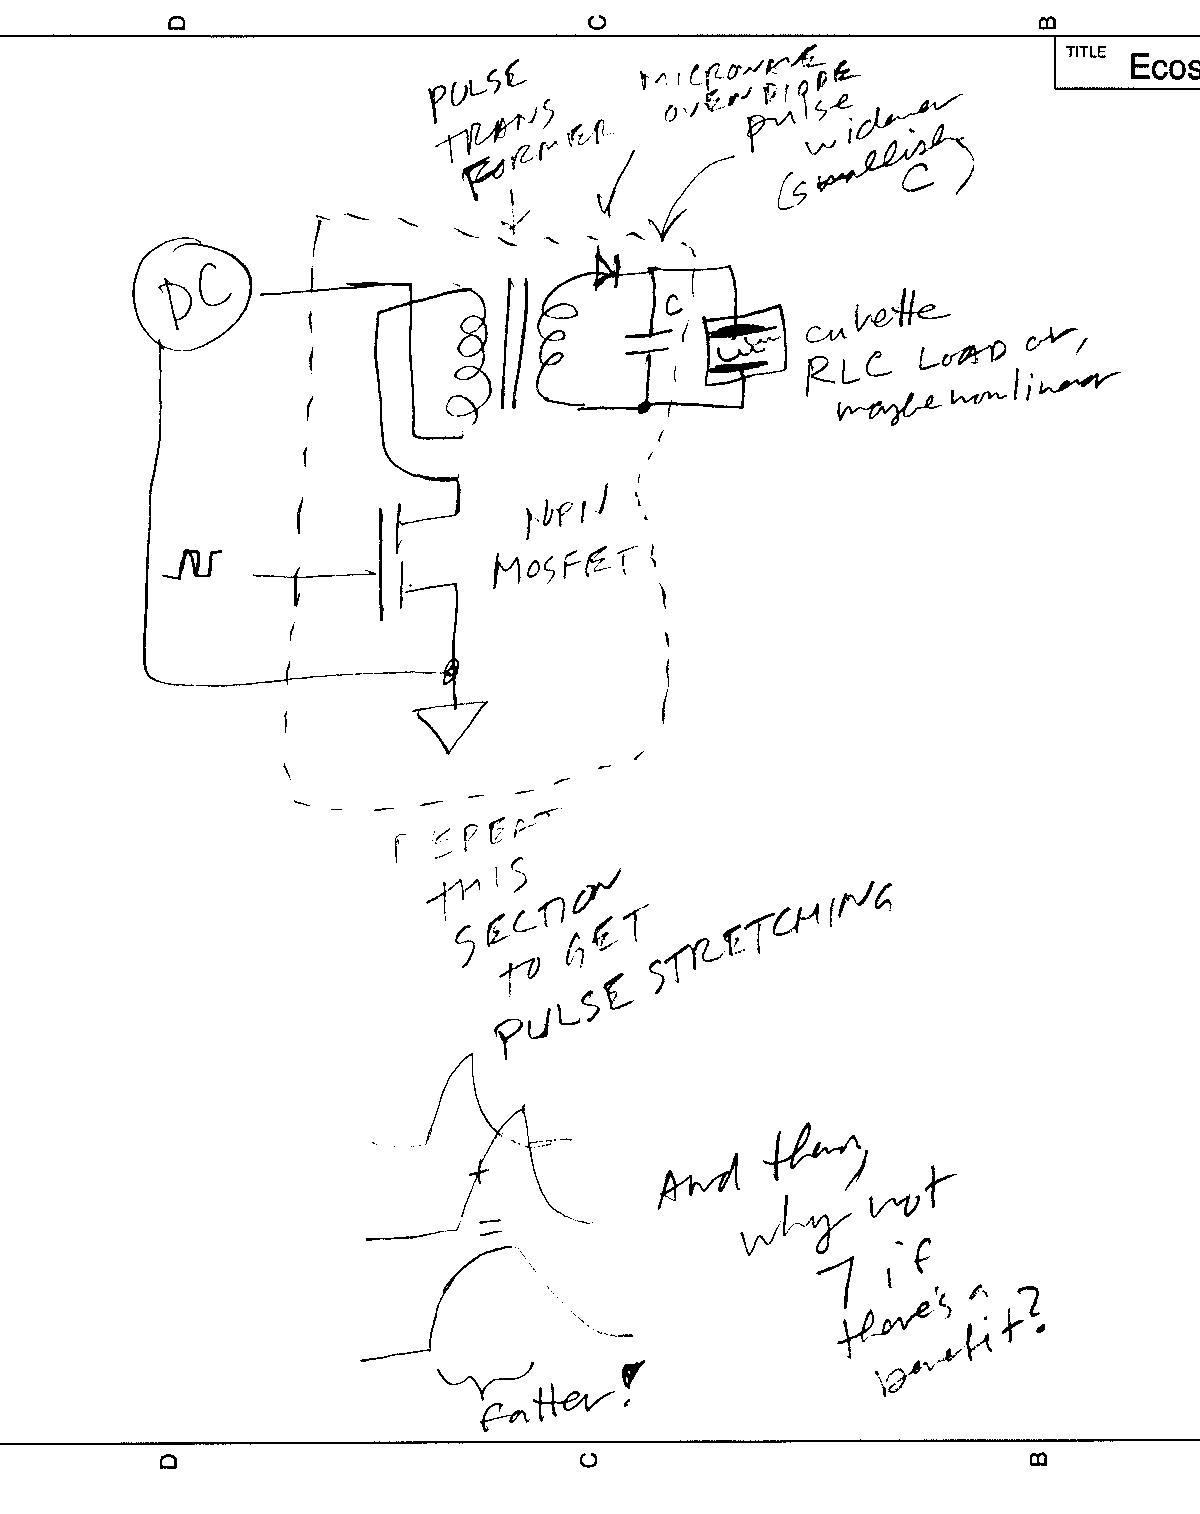 D C B
TITLE Ecos
PULSE
TRANS
FORMER
MICROWAVE
OVEN DIODE
pulse
widener
(smallish
C)
DC
C
cuvette
RLC LOAD or,
maybe nonlinear
MOSFET
REPEAT
THIS
SECTION
TO GET
PULSE STRETCHING
+
=
fatter!
And then,
why not
7 if
there's a
benefit?
D C B